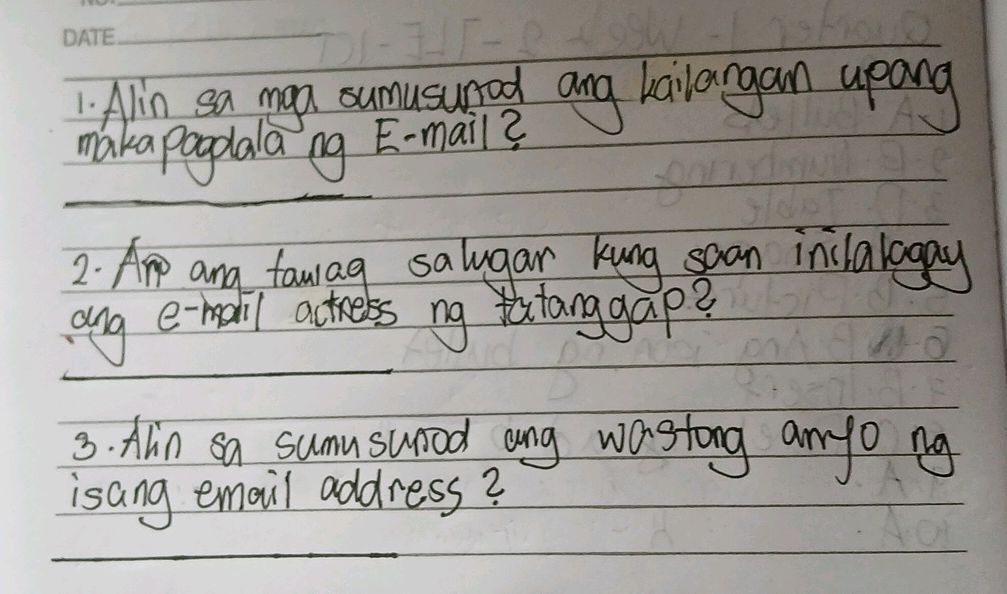 DATE
1. Alin sa mga sumusunod ang kailangan upang
makapagdala ng E-mail?
2. Ano ang tawag sa lugar kung saan inilalagay
ang e-mail actress ng tatanggap?
3. Alin sa sumusunod ang wastong anyo ng
isang email address?